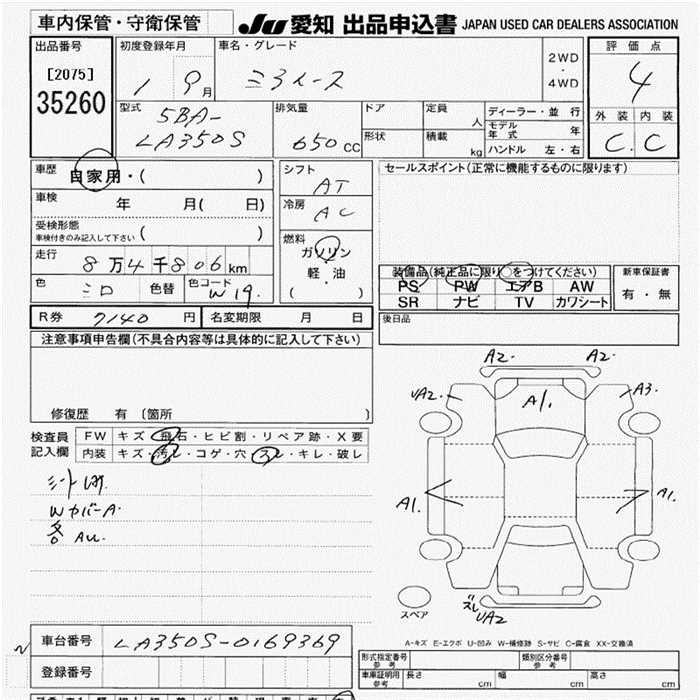 車内保管・守衛保管
JU 愛知 出品申込書 JAPAN USED CAR DEALERS ASSOCIATION
出品番号
[2075]
35260
初度登録年月
1 9月
車名・グレード
ミライース
2WD
・
4WD
評価点
4
外装 内装
C. C
型式
5BA-
LA350S
排気量
650 CC
ドア
形状
定員 人
積載 kg
ディーラー・並行
モデル年式 年
ハンドル 左・右
車歴
自家用・( )
車検 年 月( 日)
受検形態
車検付きのみ記入して下さい ( )
走行
8万4千806km
色 シロ 色替 色コード W19.
シフト
AT
冷房
AC
燃料
ガソリン
軽・油
( )
セールスポイント(正常に機能するものに限ります)
装備品(純正品に限り○をつけてください)
PS PW エアB AW
SR ナビ TV カワシート
新車保証書
有・無
R券 7140 円 名変期限 月 日
後日品
注意事項申告欄(不具合内容等は具体的に記入して下さい)
修復歴 有 〔箇所 〕
検査員
記入欄
FW キズ・飛石・ヒビ割・リペア跡・X要
内装 キズ・汚レ・コゲ・穴・スレ・キレ・破レ
Wカバー A.
各 AU.
A2. A2.
UA2. A1. A3.
A1. A1.
スペア
ズレ
UA2
A-キズ E-エクボ U-凹み W-補修跡 S-サビ C-腐食 XX-交換済
車台番号 LA350S-0169369
登録番号
型式指定番号
参考
類別区分番号
参考
車庫証明用
参考
長さ cm 幅 cm 高さ cm